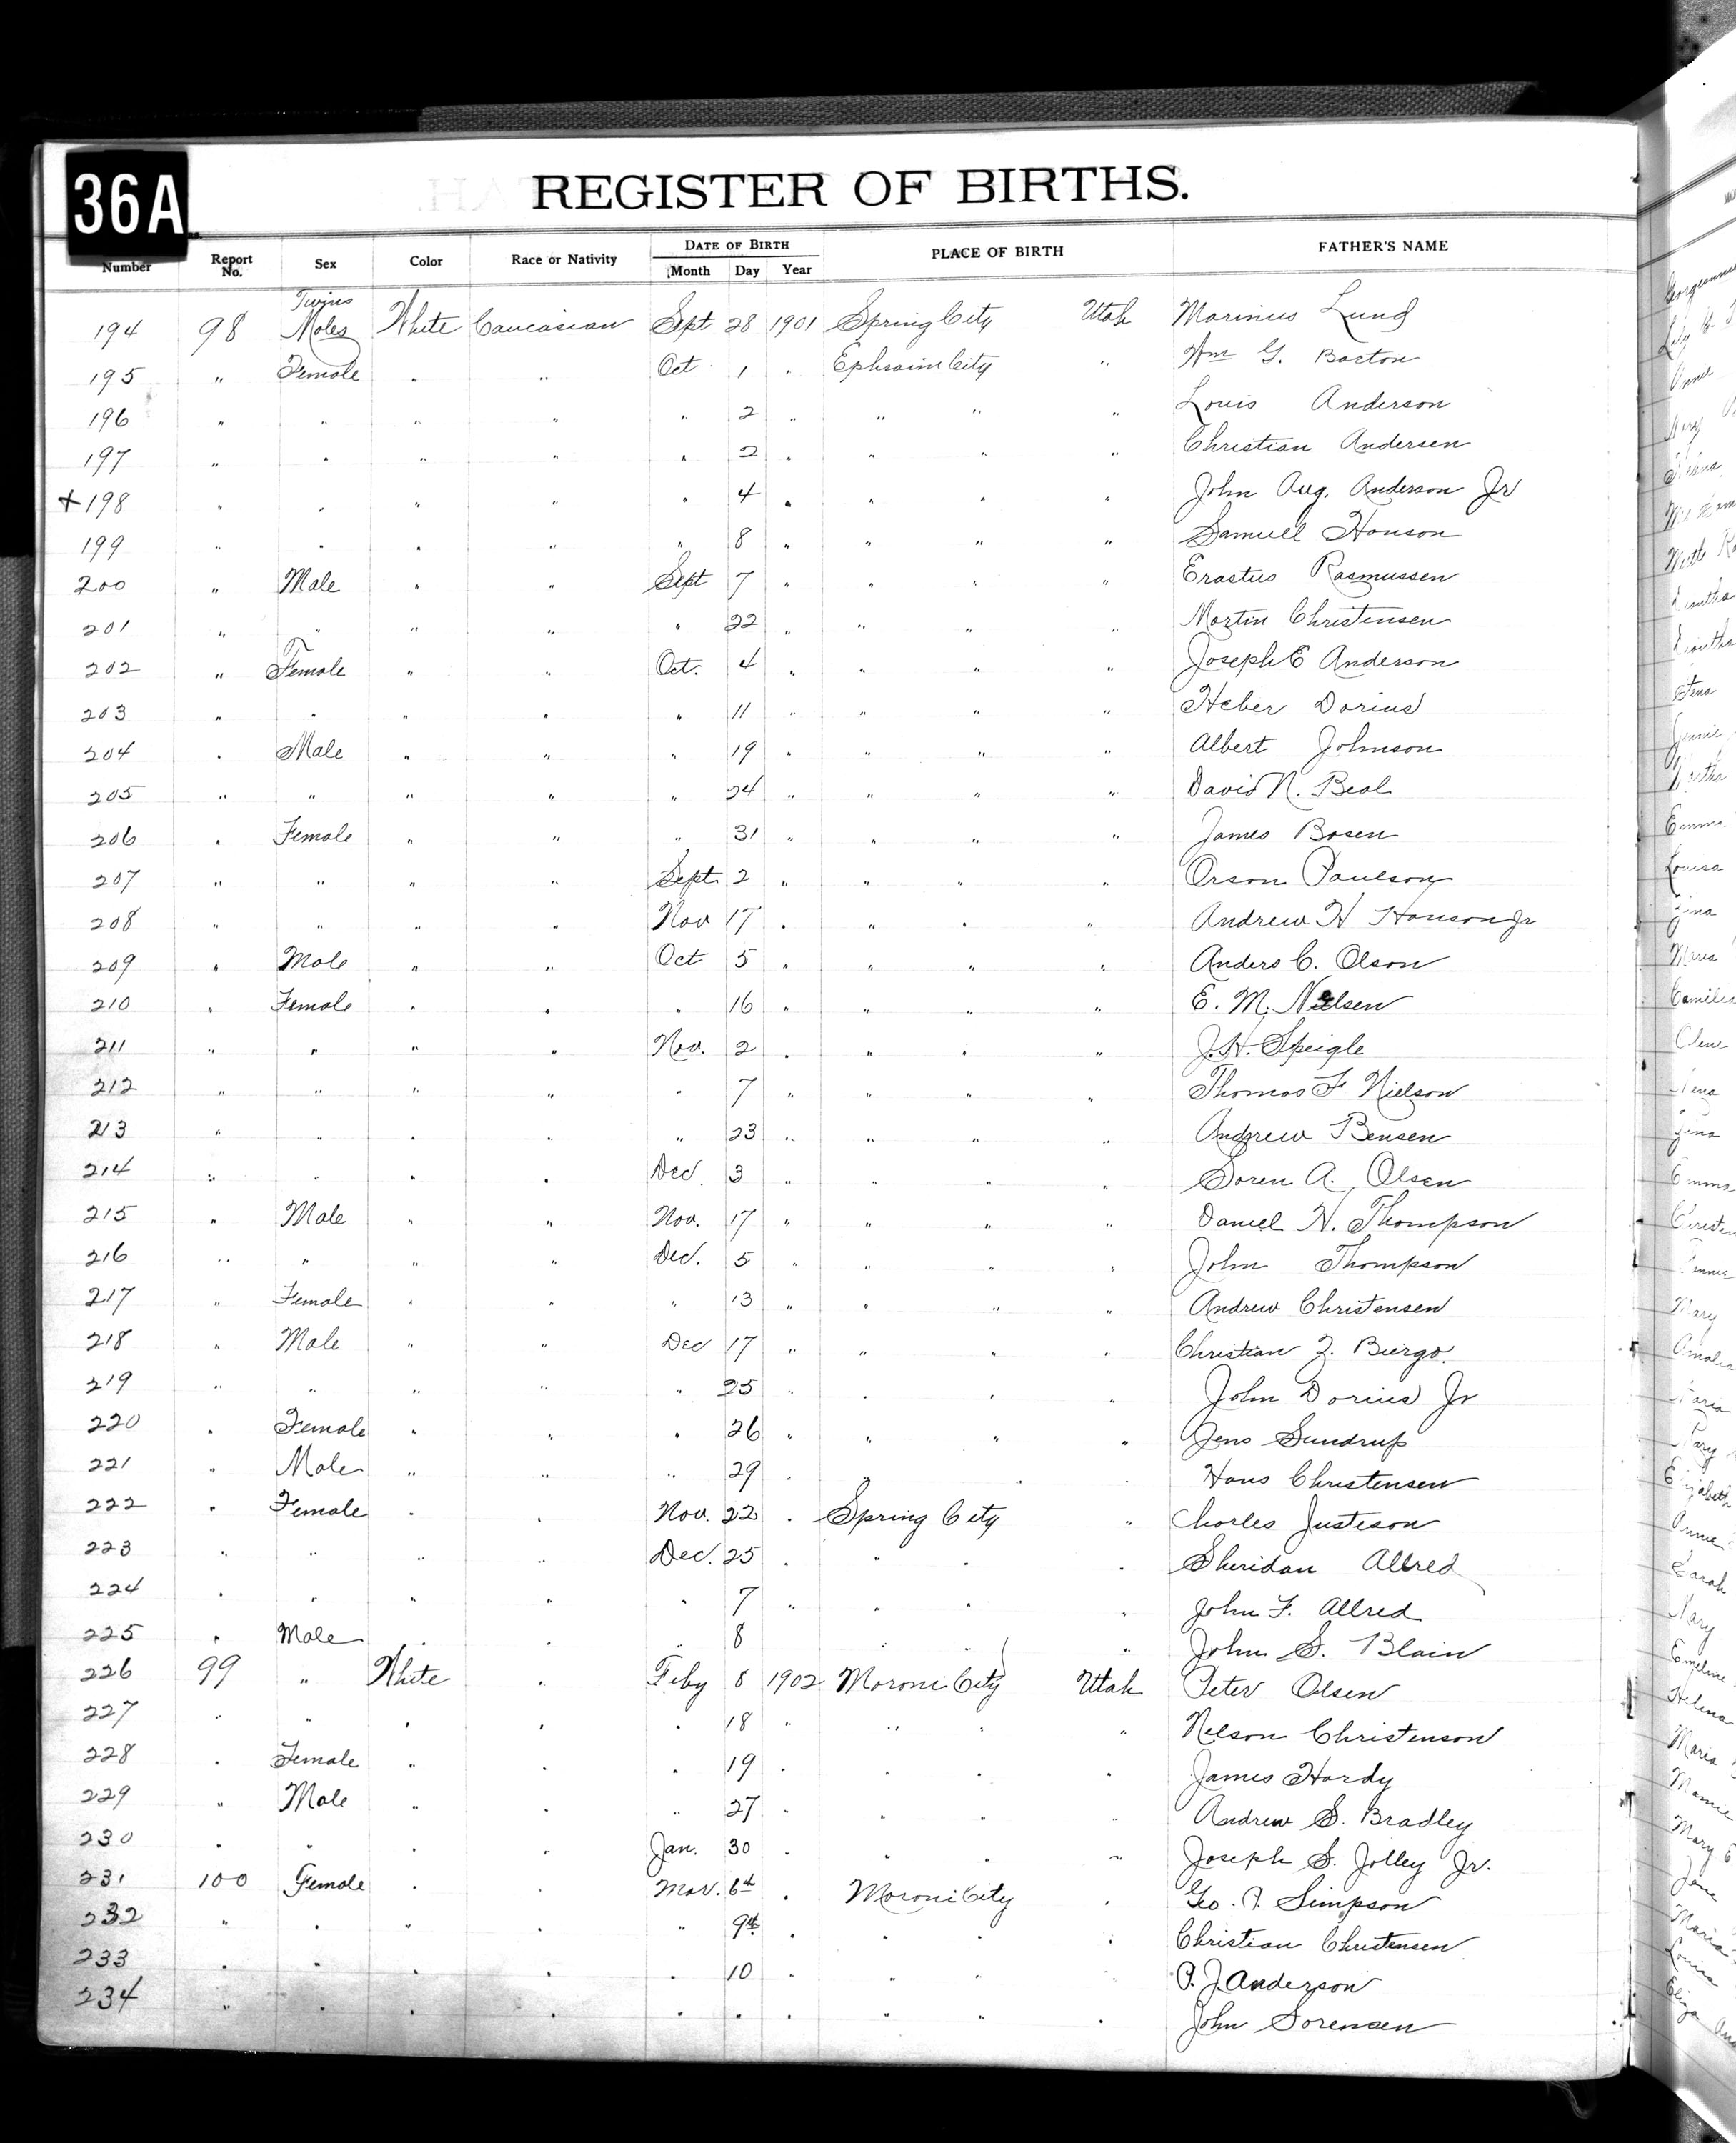 36A
REGISTER OF BIRTHS.
Number Report No. Sex Color Race or Nativity DATE OF BIRTH Month Day Year PLACE OF BIRTH FATHER'S NAME
194 98 Twins Males White Caucasian Sept 28 1901 Spring City Utah Marinus Lund
195 " Female " " Oct 1 " Ephraim City " Wm G. Barton
196 " " " " " 2 " " " " Louis Anderson
197 " " " " " 2 " " " " Christian Andersen
+ 198 " " " " " 4 " " " " John Aug. Anderson Jr
199 " " " " " 8 " " " " Samuell Hanson
200 " Male " " Sept 7 " " " " Erastus Rasmussen
201 " " " " " 22 " " " " Martin Christensen
202 " Female " " Oct. 4 " " " " Joseph E Anderson
203 " " " " " 11 " " " " Heber Dorius
204 " Male " " " 19 " " " " Albert Johnson
205 " " " " " 24 " " " " David N. Beal
206 " Female " " " 31 " " " " James Bosen
207 " " " " Sept. 2 " " " " Orson Paulson
208 " " " " Nov 17 " " " " Andrew H Hanson Jr
209 " Male " " Oct 5 " " " " Anders C. Olson
210 " Female " " " 16 " " " " E. M. Nielsen
211 " " " " Nov. 2 " " " " J. H. Speigle
212 " " " " " 7 " " " " Thomas F Nielson
213 " " " " " 23 " " " " Andrew Bensen
214 " " " " Dec. 3 " " " " Soren A. Olsen
215 " Male " " Nov. 17 " " " " Daniel H. Thompson
216 " " " " Dec. 5 " " " " John Thompson
217 " Female " " " 13 " " " " Andrew Christensen
218 " Male " " Dec 17 " " " " Christian Z. Biergo.
219 " " " " " 25 " " " " John Dorius Jr
220 " Female " " " 26 " " " " Jens Sundrup
221 " Male " " " 29 " " " " Hans Christensen
222 " Female " " Nov. 22 " Spring City " Charles Justeson
223 " " " " Dec. 25 " " " " Sheridan Allred
224 " " " " " 7 " " " " John F. Allred
225 " Male " " " 8 " " " John S. Blain
226 99 " White " Feby 8 1902 Moroni City Utah Peter Olsen
227 " " " " " 18 " " " " Nelson Christenson
228 " Female " " " 19 " " " " James Hardy
229 " Male " " " 27 " " " " Andrew S. Bradley
230 " " " " Jan. 30 " " " " Joseph S. Jolley Jr.
231 100 Female " " Mar. 6th " Moroni City " Geo. P. Simpson
232 " " " " " 9th " " " " Christian Christensen
233 " " " " " 10 " " " " P. J. Anderson
234 " " " " " " " " " " John Sorensen